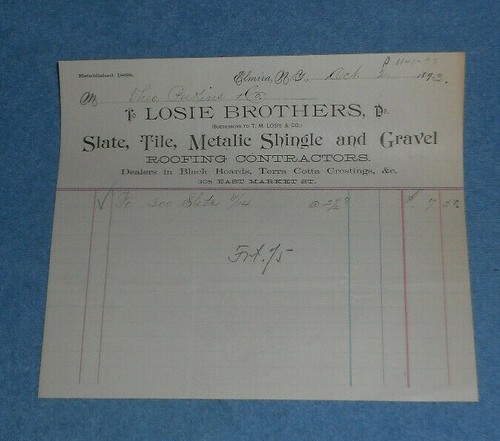 Established 1868.
Elmira, N.Y., Oct 2 1893.
M Theo Perkins & Co
To LOSIE BROTHERS, Dr.
(SUCCESSORS TO T. M. LOSIE & CO.)
Slate, Tile, Metalic Shingle and Gravel
ROOFING CONTRACTORS.
Dealers in Black Boards, Terra Cotta Crestings, &c.
308 EAST MARKET ST.
300 Slate @ 2½ 7
Frt.